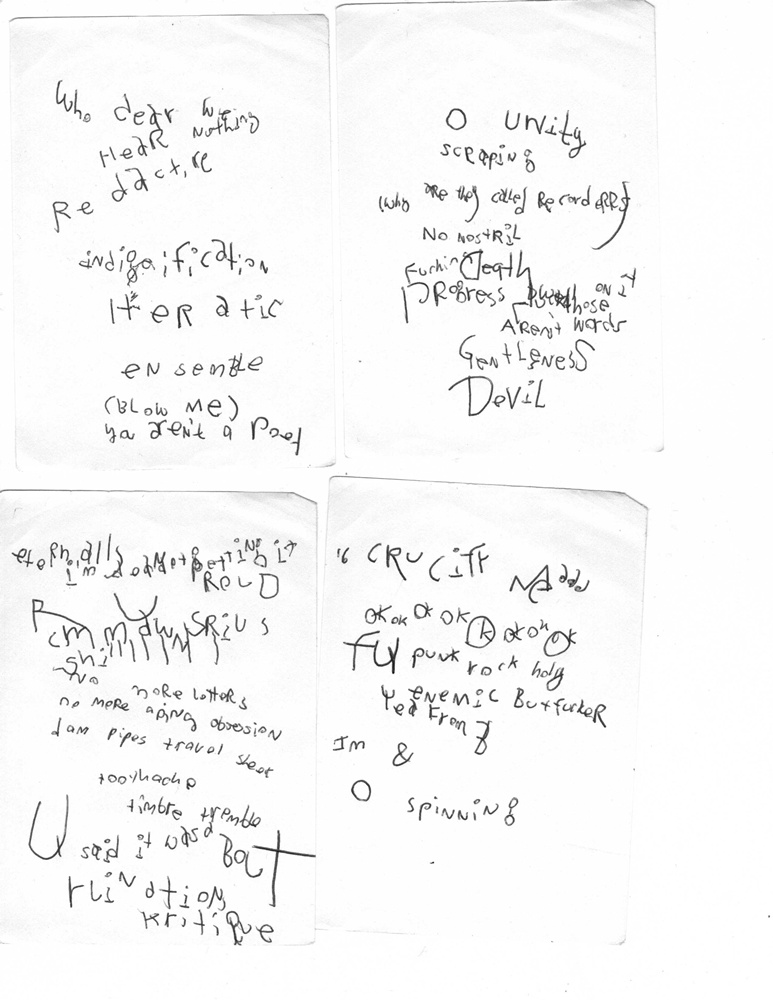 Who dear we
Hear Nothing
Re dactire
indigification
Iteratic
ensemble
(Blow me)
ya aren't a Poet
O Unity
scraping
(why are they called Record
No nostril
Death
Progress those on it
Aren't words
Gentleness
Devil
it
Proud
no more letters
no more aging obsession
dam pipes travel sheet
toothache
timbre tremble
U said it was a Boat
rlination
Kritique
ok ok ok ok ok ok ok ok
FU punk rock holy
enemic Butfucker
Im &
O spinning